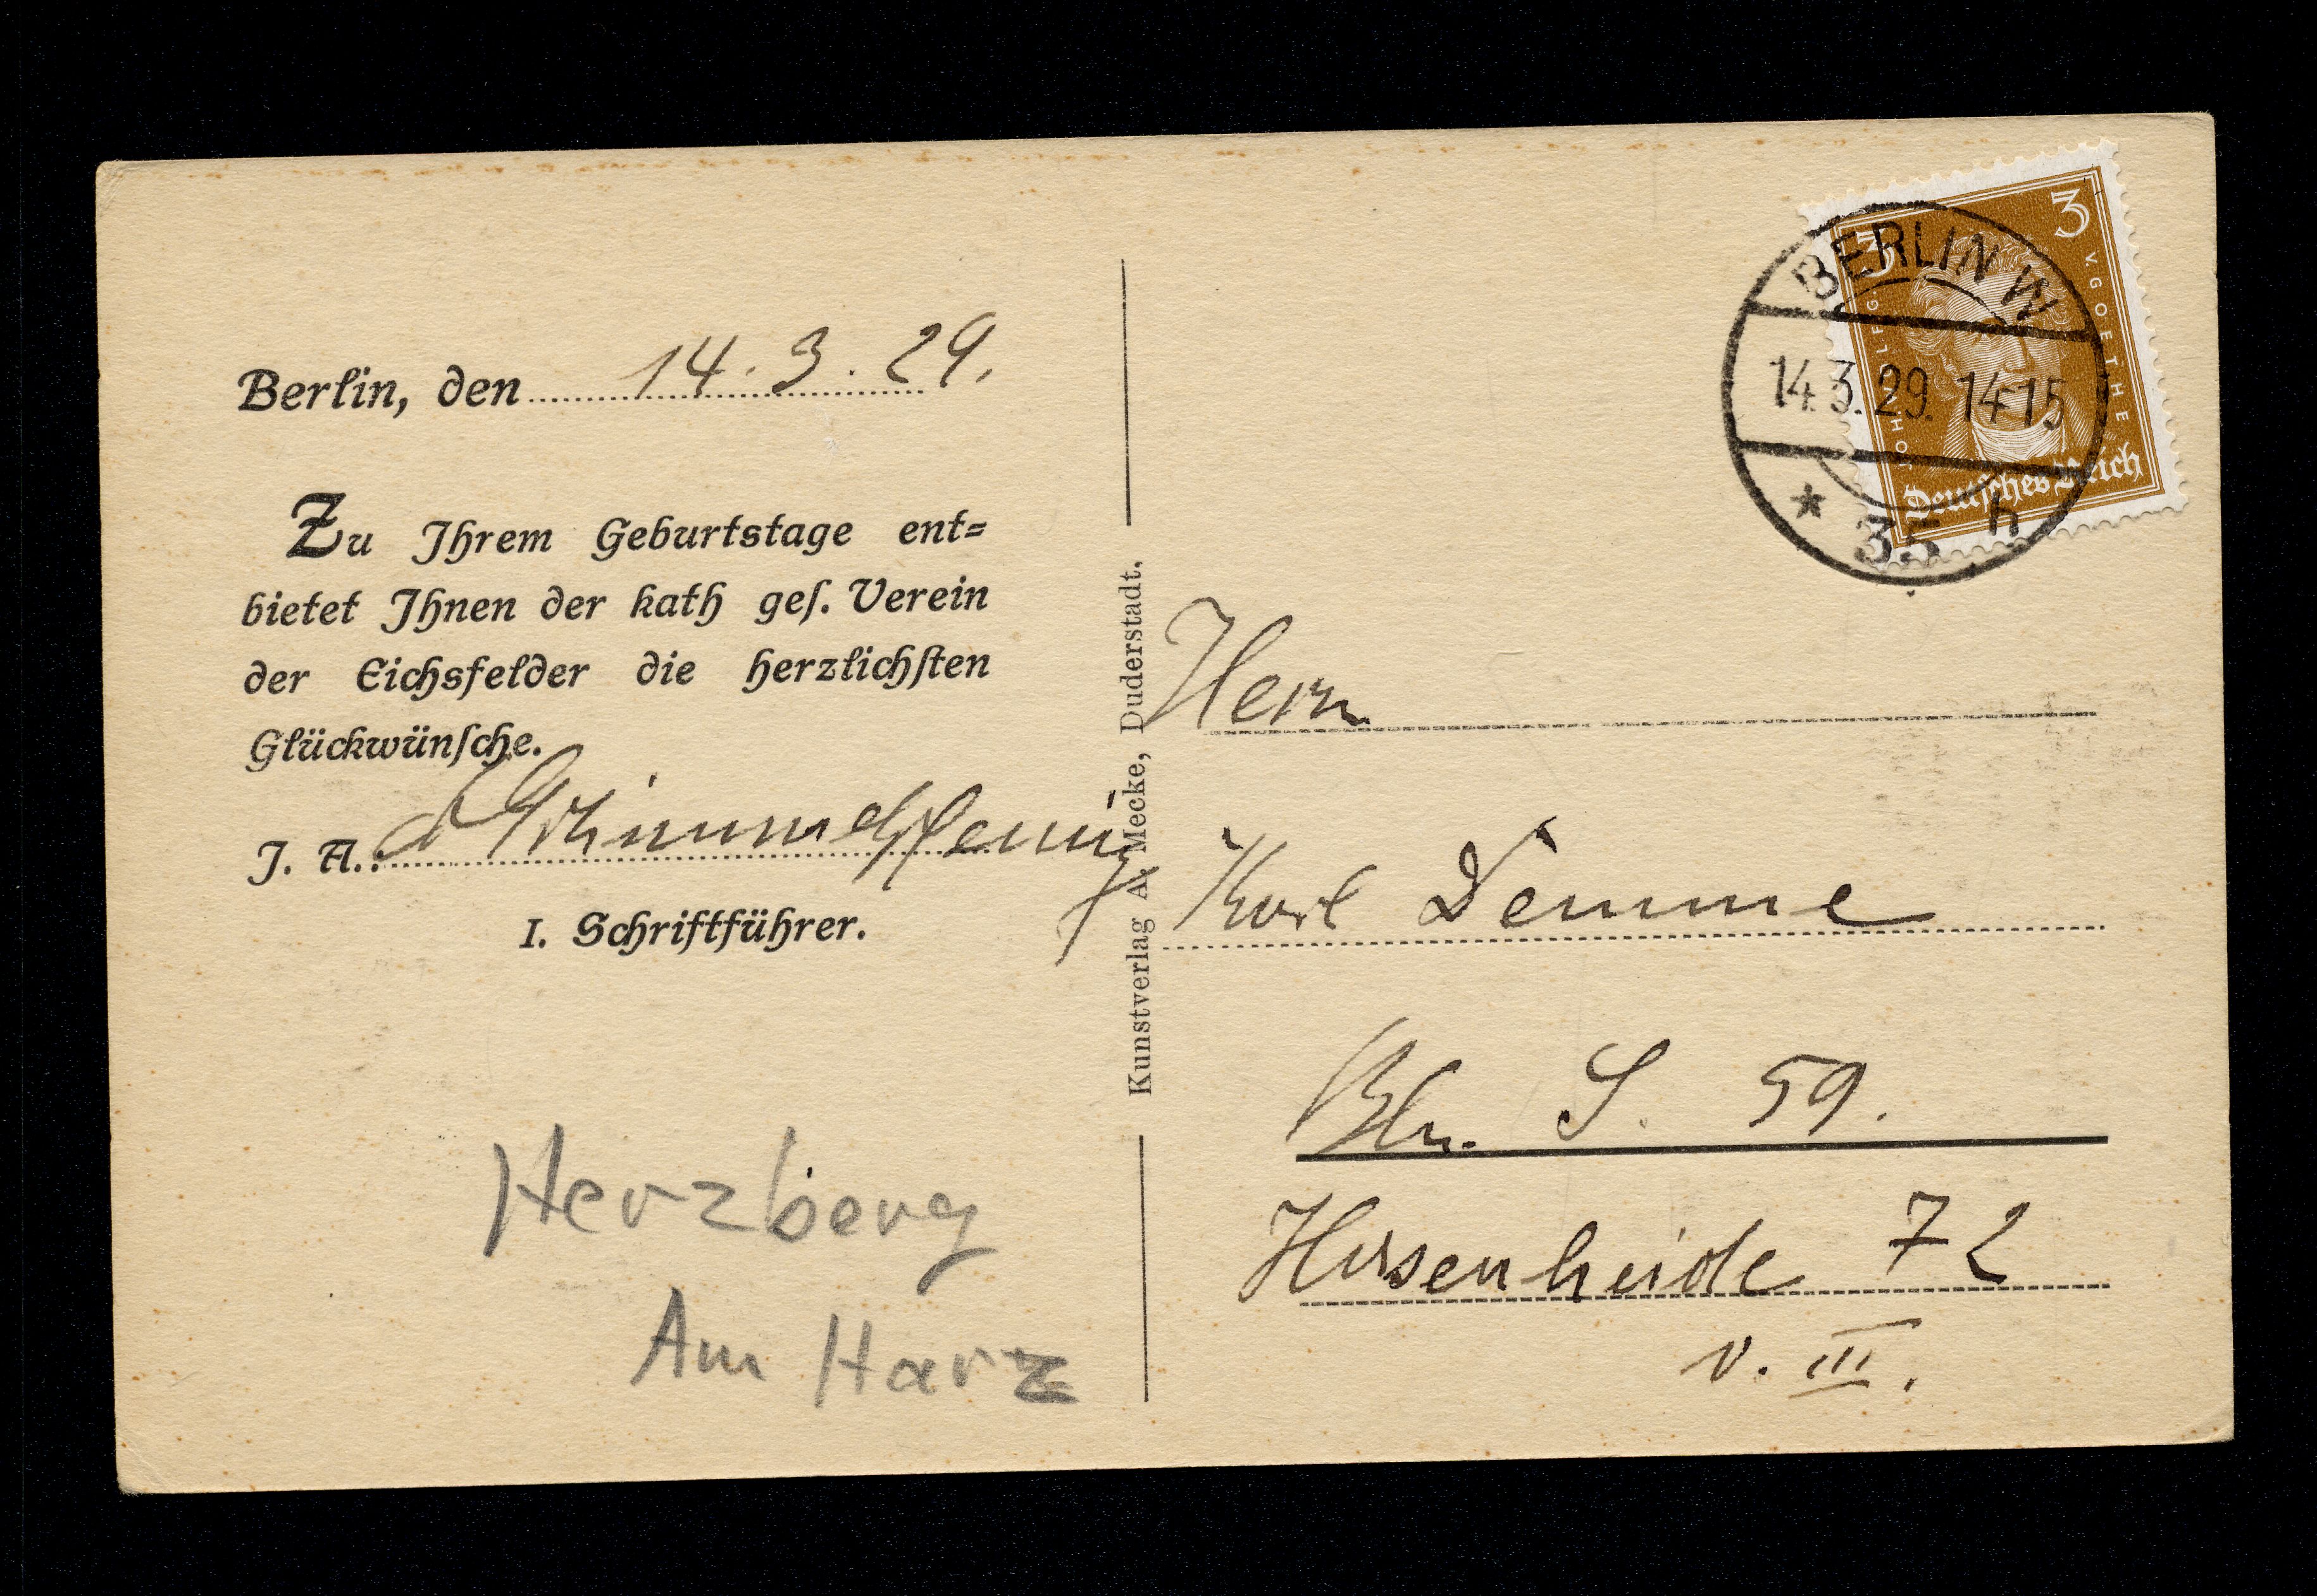 Berlin, den 14. 3. 29.
Zu Ihrem Geburtstage ent=
bietet Ihnen der kath geſ. Verein
der Eichsfelder die herzlichſten
Glückwünſche.
J. A.: Schimmelpfennig
I. Schriftführer.
Herzberg
Am Harz
Kunstverlag A. Mecke, Duderstadt.
3 3
JOH. WOLFG. V. GOETHE
Deutsches Reich
BERLIN W
14.3.29. 14 15
* 35 h
Herrn
Karl Demme
Bln. S. 59.
Hasenheide 72
v. III.